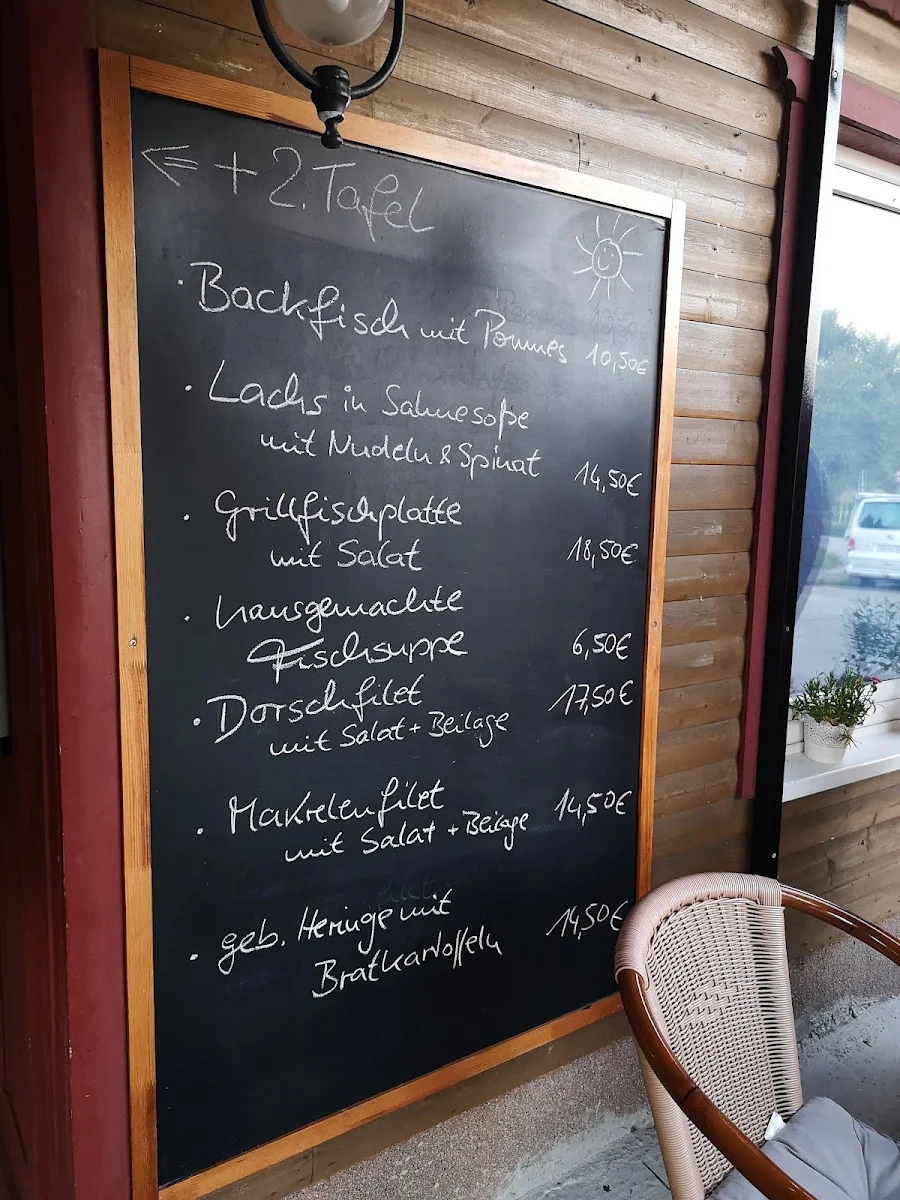 ⇐ + 2. Tafel
· Backfisch mit Pommes 10,50€
· Lachs in Sahnesoße
mit Nudeln & Spinat 14,50€
· Grillfischplatte
mit Salat 18,50€
· hausgemachte
Fischsuppe 6,50€
· Dorschfilet 17,50€
mit Salat + Beilage
· Makrelenfilet 14,50€
mit Salat + Beilage
· geb. Heringe mit 14,50€
Bratkartoffeln